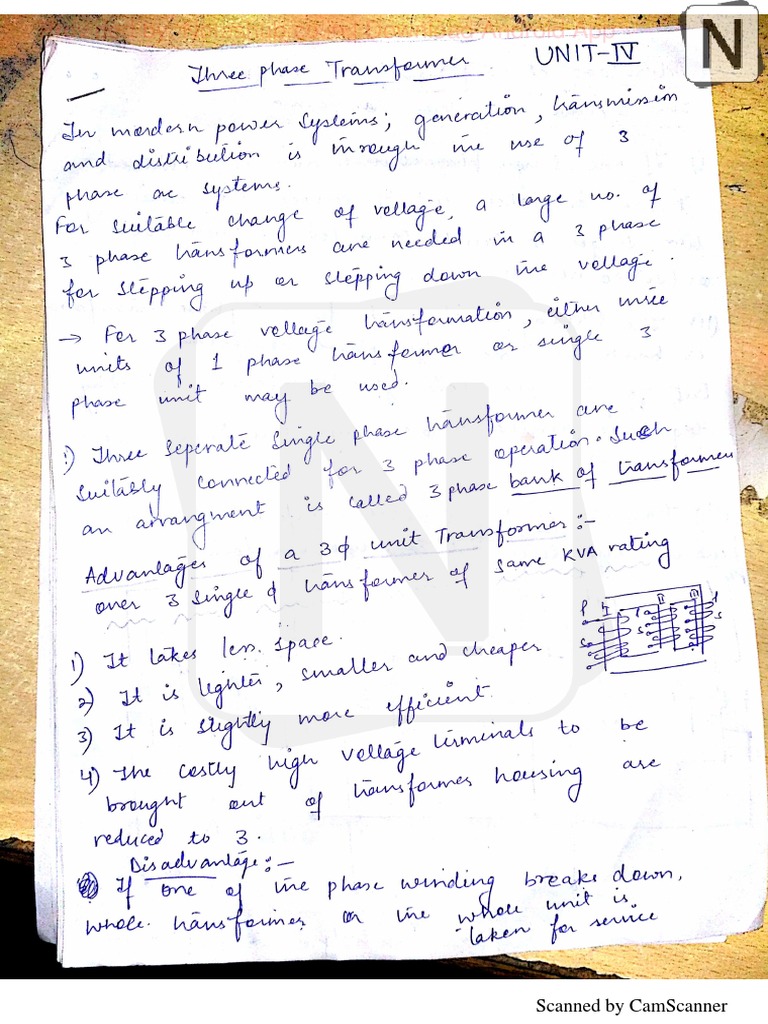 Three phase Transformer UNIT-IV
N
In mordern power systems; generation, transmission
and distribution is through the use of 3
phase ac systems.
For suitable change of voltage, a large no. of
3 phase transformers are needed in a 3 phase
for stepping up or stepping down the voltage.
→ For 3 phase voltage transformation, either three
units of 1 phase transformer or single 3
phase unit may be used.
:) Three seperate single phase transformer are
suitably connected for 3 phase operation. Such
an arrangment is called 3 phase bank of transformer
Advantages of a 3ϕ unit Transformer:-
over 3 single ϕ transformer of same KVA rating
P I II III
S S S
1) It takes less space.
2) It is lighter, smaller and cheaper
3) It is slightly more efficient.
4) The costly high voltage terminals to be
brought out of transformer housing are
reduced to 3.
Disadvantage:-
If one of the phase winding breaks down,
whole transformer or the whole unit is
taken for service
Scanned by CamScanner